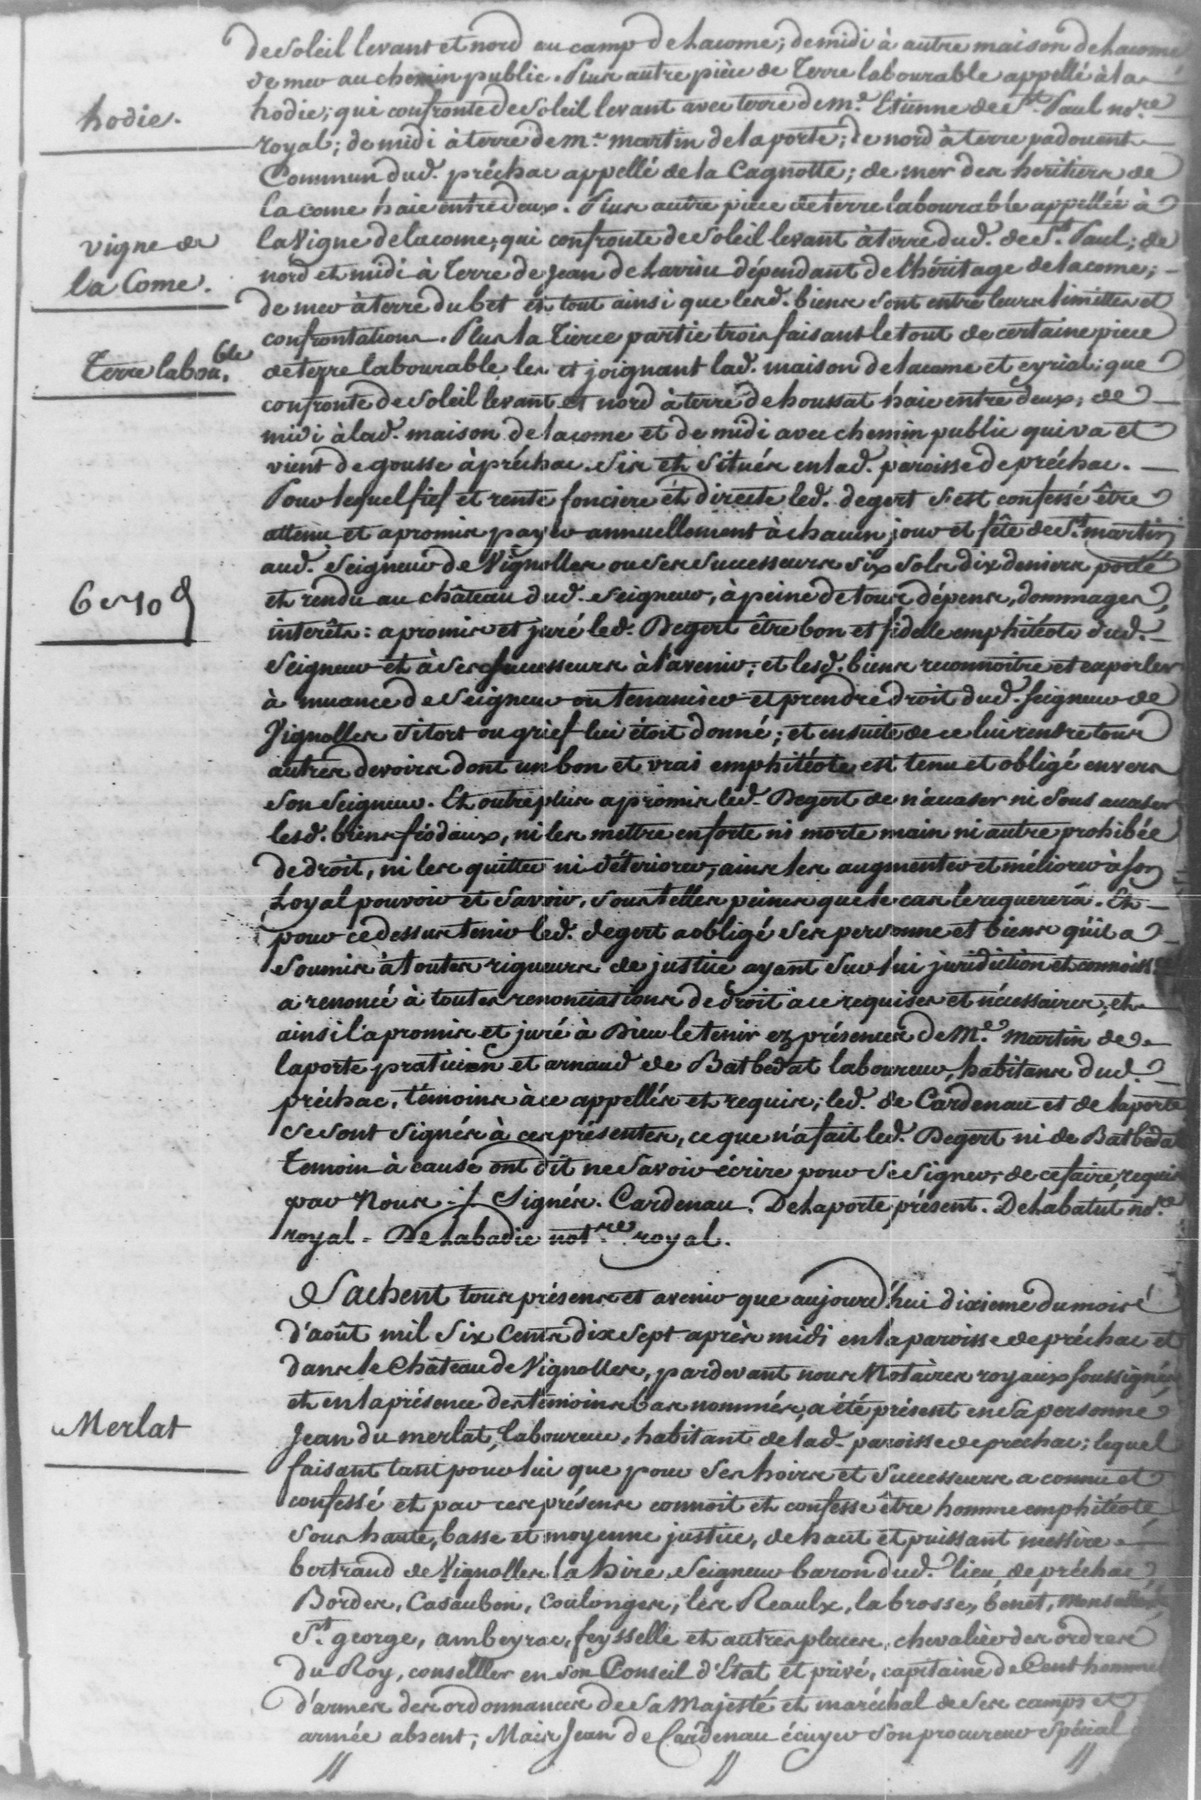 de Soleil levant et nord au camp de Lacome; de midi à autre maison de Lacome
de mer au chemin public. Plus autre pièce de Terre labourable appellé à la
hodie.
hodie; qui confronte de Soleil levant avec terre de me. Etienne de St. Paul nore.
royal; de midi à terre de me. martin de laporte; de nord à terre padouent
Commun dud. préchac appellé de la Cagnotte; de mer des heritiers de
Lacome haie entre deux. Plus autre piece de terre labourable appellée à
vigne de
la Come.
la Vigne de lacome; qui confronte de Soleil levant à terre dud. de St. Paul; de
nord et midi à Terre de Jean de Larriu dépendant de l'héritage de lacome;
de mer à terre du bet et tout ainsi que lesd. biens sont entre leurs limittes et
confrontations. Plus la Tierce partie trois faisant le tout de certaine piece
Terre labouble.
de terre labourable les et joignant lad. maison de lacome et eyrial; que
confronte de Soleil levant et nord à terre de houssat haie entre deux; de
midi à lad. maison de lacome et de midi avec chemin public qui va et
vient de gousse à préchac. Sis et Situés en lad. paroisse de préchac.
Pour lequel fief et rente fonciere et directe led. degert s'est confessé être
attenu et a promis payer annuellement à chacun jour et fête de St. martin
aud. Seigneur de Vignolles ou ses successeurs Six Sols dix deniers porté
6s 10d
et rendu au château dud. Seigneur, à peine de tous dépens, dommages
interêts: a promis et juré led. Degert être bon et fidelle emphitéote dud.
Seigneur et à Ses successeurs à l'avenir; et lesd. biens reconnoitre et exporler
à muance de Seigneur ou tenancier et prendre droit dud. Seigneur de
Vignolles si tort ou grief lui étoit donné; et ensuite de ce lui rendre tous
autres devoirs dont un bon et vrai emphitéote est tenu et obligé envers
son Seigneur. Et outre plus a promis led. Degert de n'acaser ni sous acaser
lesd. biens féodaux, ni les mettre en forte ni morte main ni autre prohibée
de droit, ni les quitter ni déteriorer, ains les augmenter et méliorer à son
Loyal pouvoir et Savoir, Sous telles peines que le cas le requerera. Et
pour ce dessus tenir led. degert a obligé Ses personne et biens qu'il a
Soumis à toutes rigueurs de justice ayant Sur lui juridiction et connoiss
a renoncé à toutes renonciations de droit à ce requises et nécessaires, et
ainsi l'a promis et juré à Dieu le tenir ez présences de Me. martin de
laporte praticien et arnaud de Batbedat laboureur, habitans dud.
préchac, témoins à ce appellés et requis; led. de Cardenau et de laporte
Se sont Signés à ces présentes, ce que n'a fait led. Degert ni de Batbedat
Temoin à cause ont dit ne Savoir écrire pour Se Signer, de ce faire requis
par Nous ./. Signés. Cardenau. De Laporte présent. De Labatut nore.
royal. De Labadie notre. royal.
Sachent tous présens et avenir que aujourd'hui dixieme du mois
d'août mil Six Cens dix Sept après midi en la paroisse de préchac et
dans le Château de Vignolles, pardevant nous Notaires royaux soussignés
et en la présence des témoins bas nommés, a été présent en Sa personne
Merlat
Jean du merlat, laboureur, habitant de lad. paroisse de préchac; lequel
faisant tant pour lui que pour Ses hoirs et Successeurs a connu et
confessé et par ces présens connoit et confesse être homme emphitéote
Sous haute, basse et moyenne justice, de haut et puissant messire
bertrand de Vignolles la hire Seigneur baron dud. lieu de préchac,
Bordes, Casaubon, Coulonges, les Reaulx, labrosse, bénet,
St. george, ambeyrac, feysselle et autres places, chevalier des ordres
du Roy, conseller en Son Conseil d'Etat et privé, capitaine de Cent hommes
d'armes des ordonnances de Sa Majesté et maréchal de Ses camps et
armée absent; Mais Jean de Cardenau écuyer Son procureur Spécial